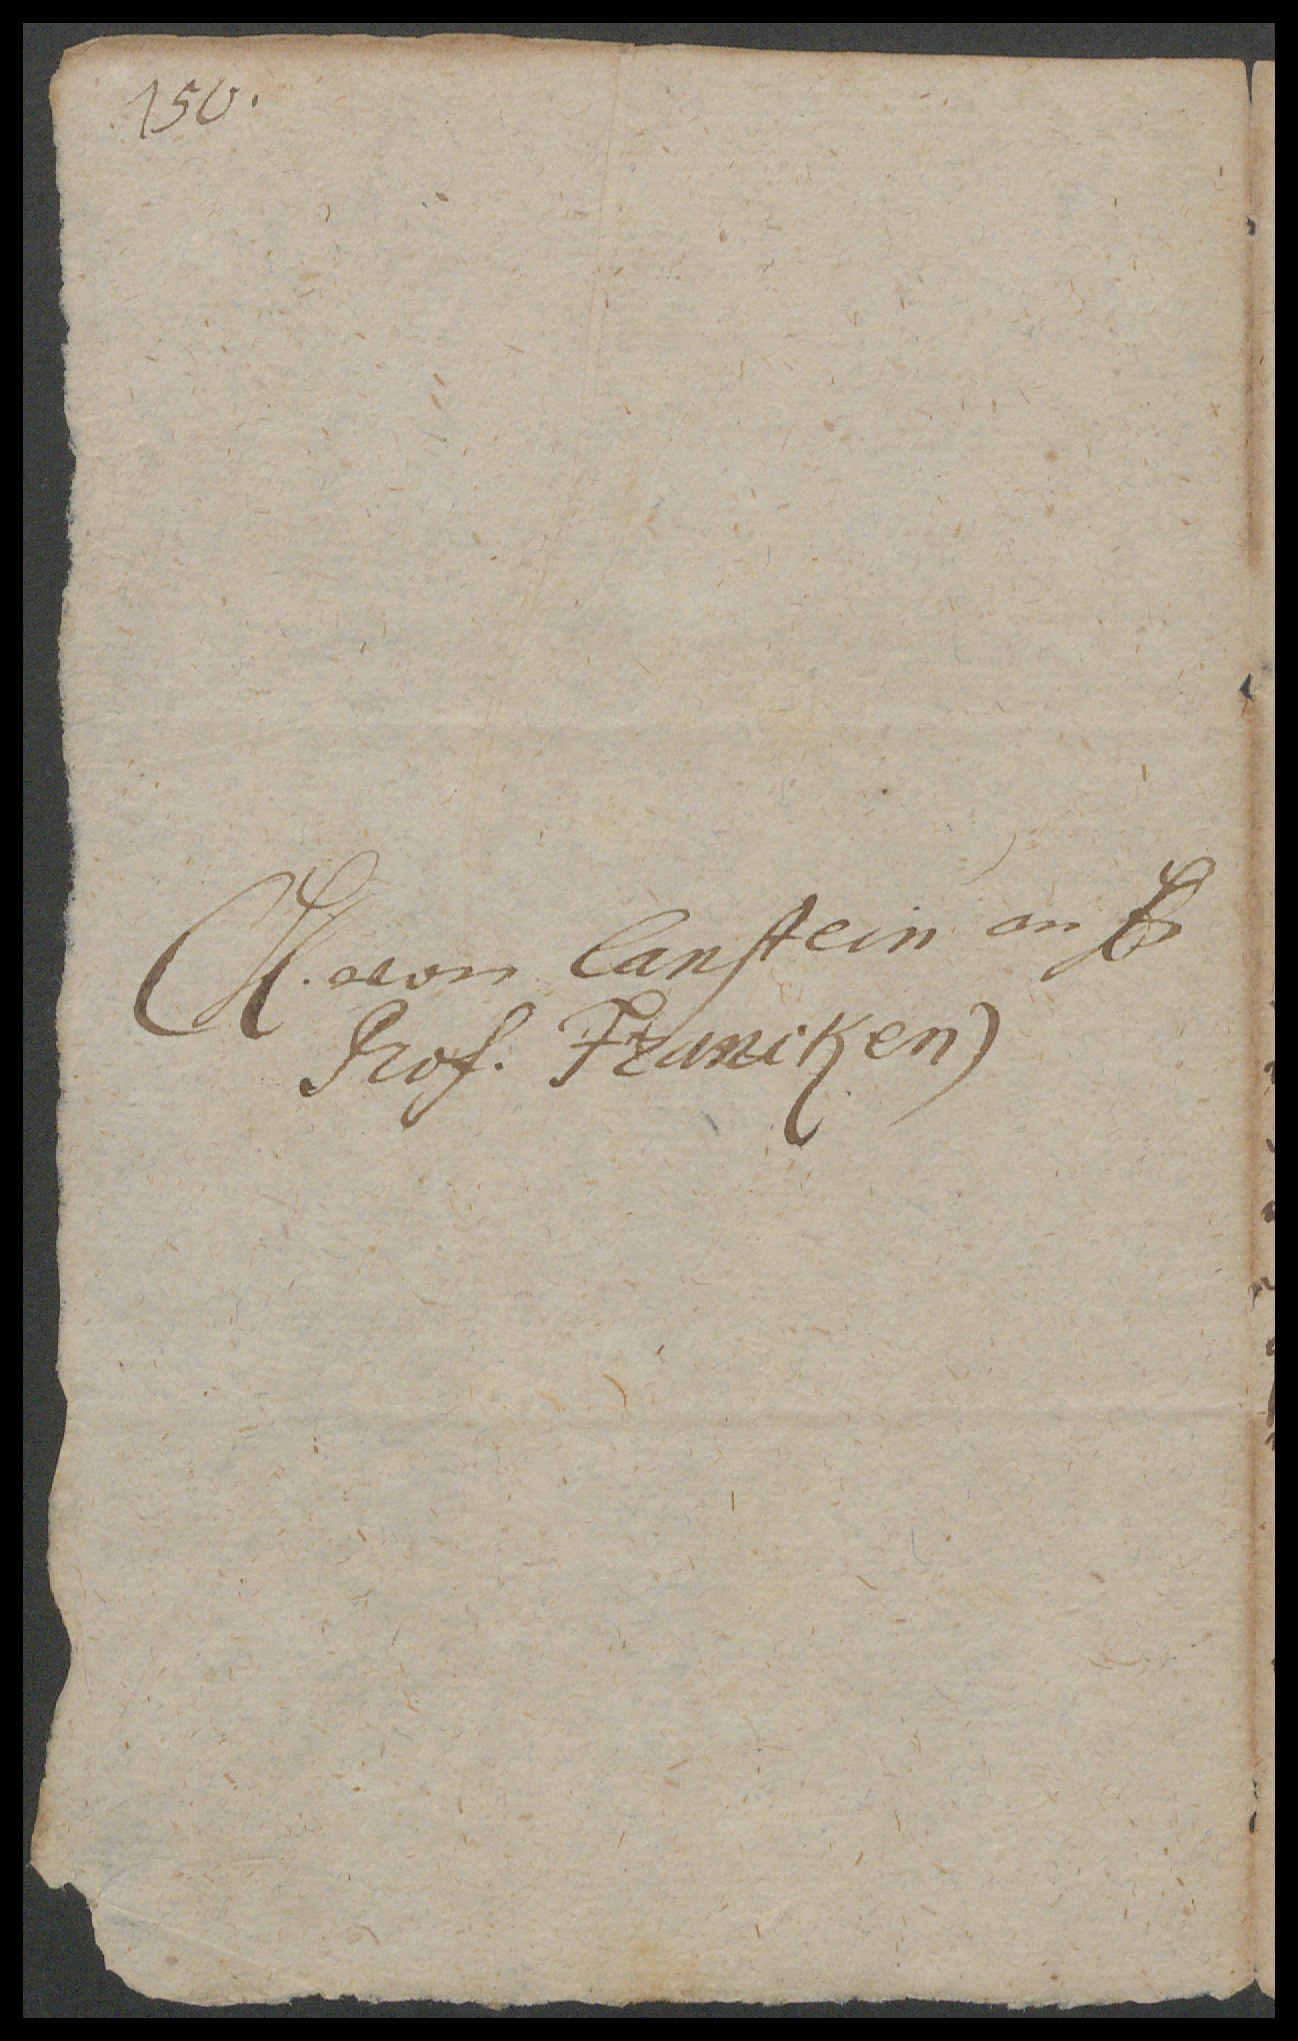 150.
(H. von Canstein an H
Prof. Francken)